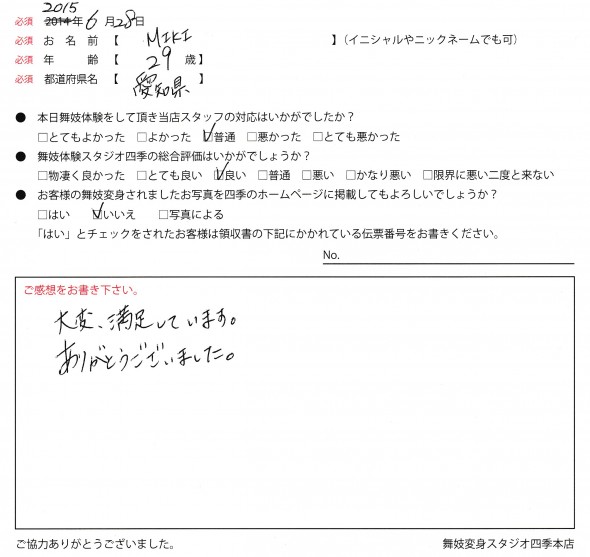 2015
必須 2014年6月28日
必須 お名前【 MIKI 】(イニシャルやニックネームでも可)
必須 年齢【 29 歳】
必須 都道府県名【 愛知県 】
● 本日舞妓体験をして頂き当店スタッフの対応はいかがでしたか?
□とてもよかった □よかった ☑普通 □悪かった □とても悪かった
● 舞妓体験スタジオ四季の総合評価はいかがでしょうか?
□物凄く良かった □とても良い ☑良い □普通 □悪い □かなり悪い □限界に悪い二度と来ない
● お客様の舞妓変身されましたお写真を四季のホームページに掲載してもよろしいでしょうか?
□はい ☑いいえ □写真による
「はい」とチェックをされたお客様は領収書の下記にかかれている伝票番号をお書きください。
No.
ご感想をお書き下さい。
大変、満足しています。
ありがとうございました。
ご協力ありがとうございました。 舞妓変身スタジオ四季本店